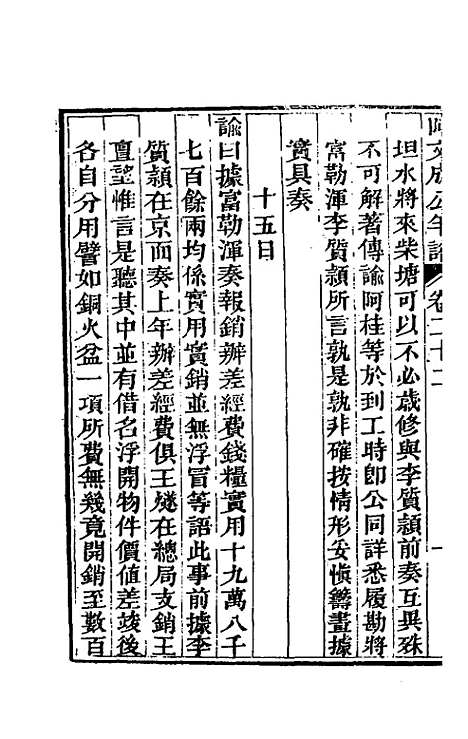 阿文成公年譜 卷二十二 一
坦水將來柴塘可以不必歲修與李質穎前奏互異殊
不可解著傳諭阿桂等於到工時卽公同詳悉履勘將
富勒渾李質穎所言孰是孰非確按情形妥慎籌畫據
實具奏
十五日
諭曰據富勒渾奏報銷辦差經費錢糧實用十九萬八千
七百餘兩均係實用實銷並無浮冒等語此事前據李
質穎在京面奏上年辦差經費俱王燧在總局支銷王
亶望惟言是聽其中並有借名浮開物件價值差竣後
各自分用譬如銅火盆一項所費無幾竟開銷至數百